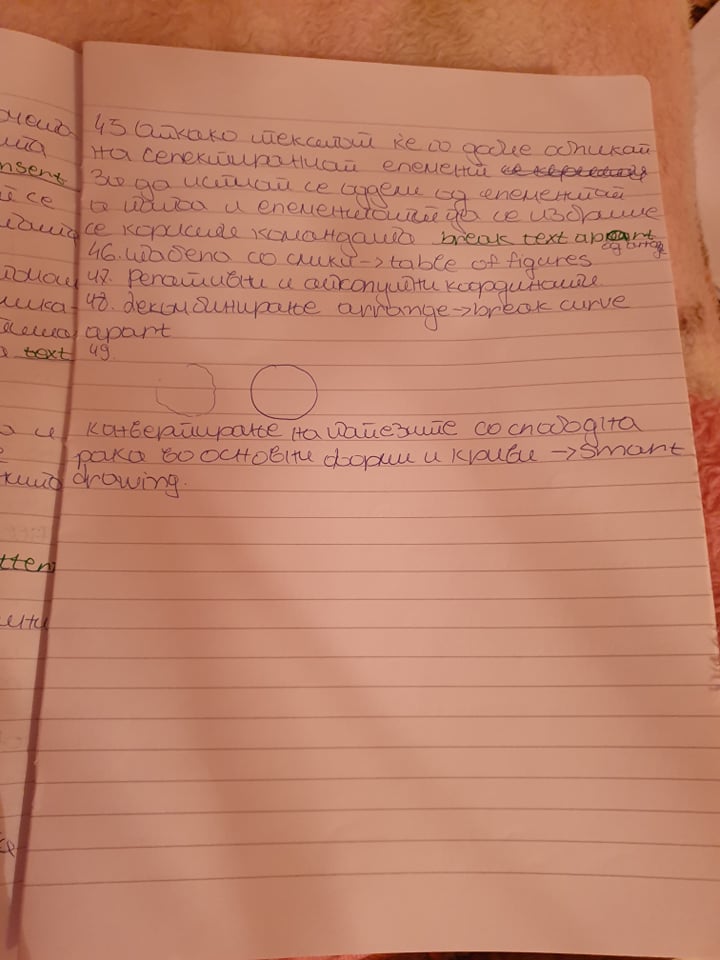 омена
ила
nsent
се
text
tten
45 Откако текстот ќе го добие обликот
на селектираниот елемент
За да истиот се оддели од елементот
и елементот да се избрише
се користи командата break text apart
од arrange
46. табела со слики → table of figures
47. Релативни и апсолутни координати.
48. декомбинирање arrange → break curve
apart
49.
конвертирање на потезите со слободна
рака во основни форми и криви → Smart
drawing.